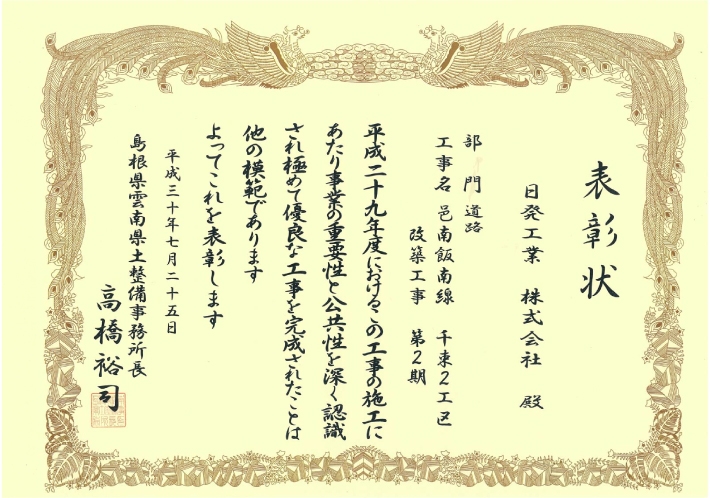 表彰状
日発工業 株式会社 殿
部門 道路
工事名 邑南飯南線 千束2工区
改築工事 第2期
平成二十九年度におけるこの工事の施工に
あたり事業の重要性と公共性を深く認識
され極めて優良な工事を完成されたことは
他の模範であります
よってこれを表彰します
平成三十年七月二十五日
島根県雲南県土整備事務所長
高橋裕司